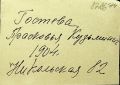 Гостева
Прасковья Кузьминична
1904
Никольская 82